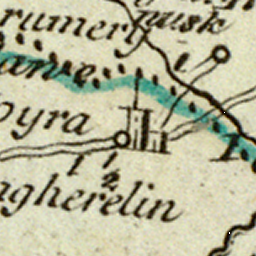 rumery
nusk
1
awe
byra
1 1/2
agherelin